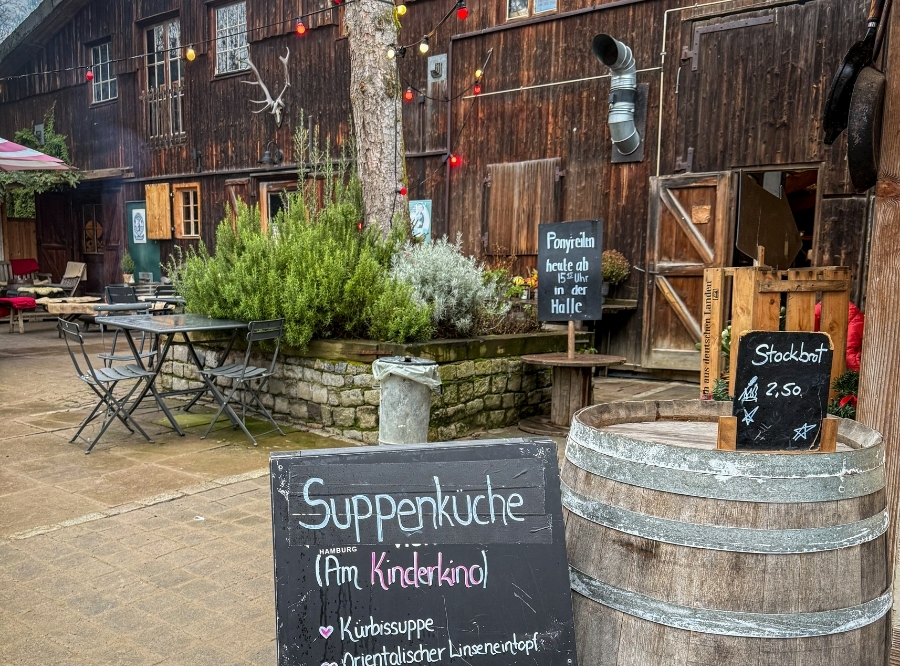 Ponyreiten
heute ab
15 Uhr
in der
Halle
aus deutschen Landen
Stockbrot
2,50.
Suppenküche
HAMBURG
(Am Kinderkino)
Kürbissuppe
Orientalischer Linseneintopf